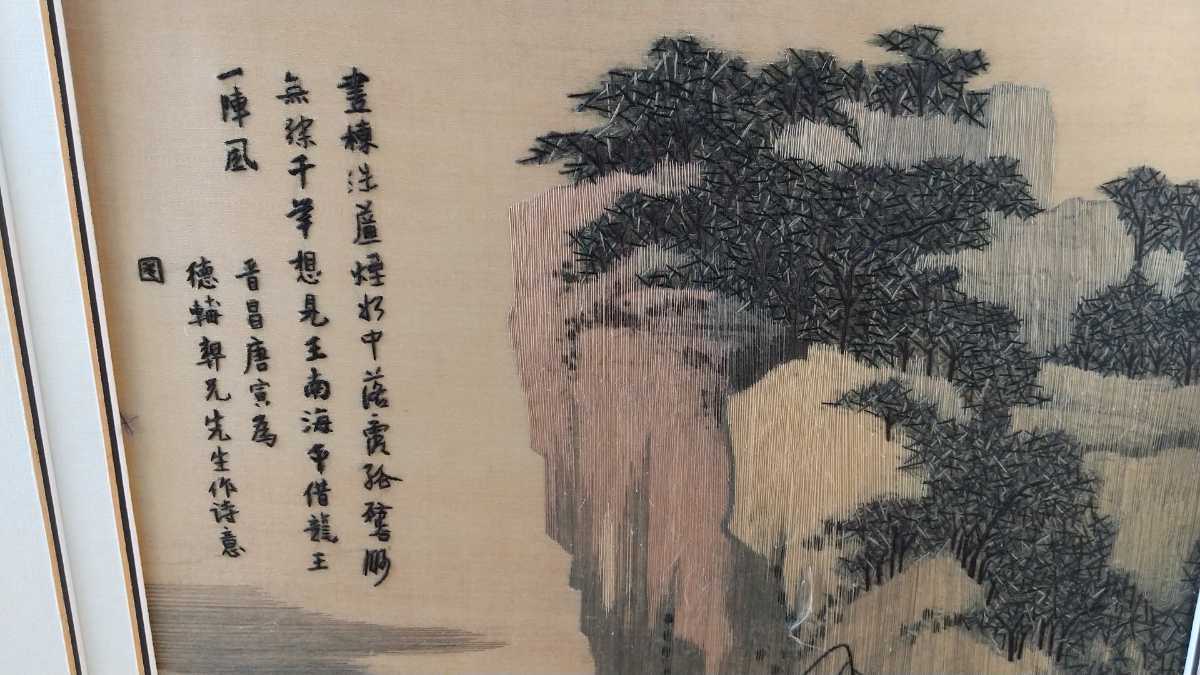 畫棟珠簾煙水中落霞孤鶩渺
無踪千年想見王南海曾借龍王
一陣風
晉昌唐寅為
德輔契兄先生作诗意
圖